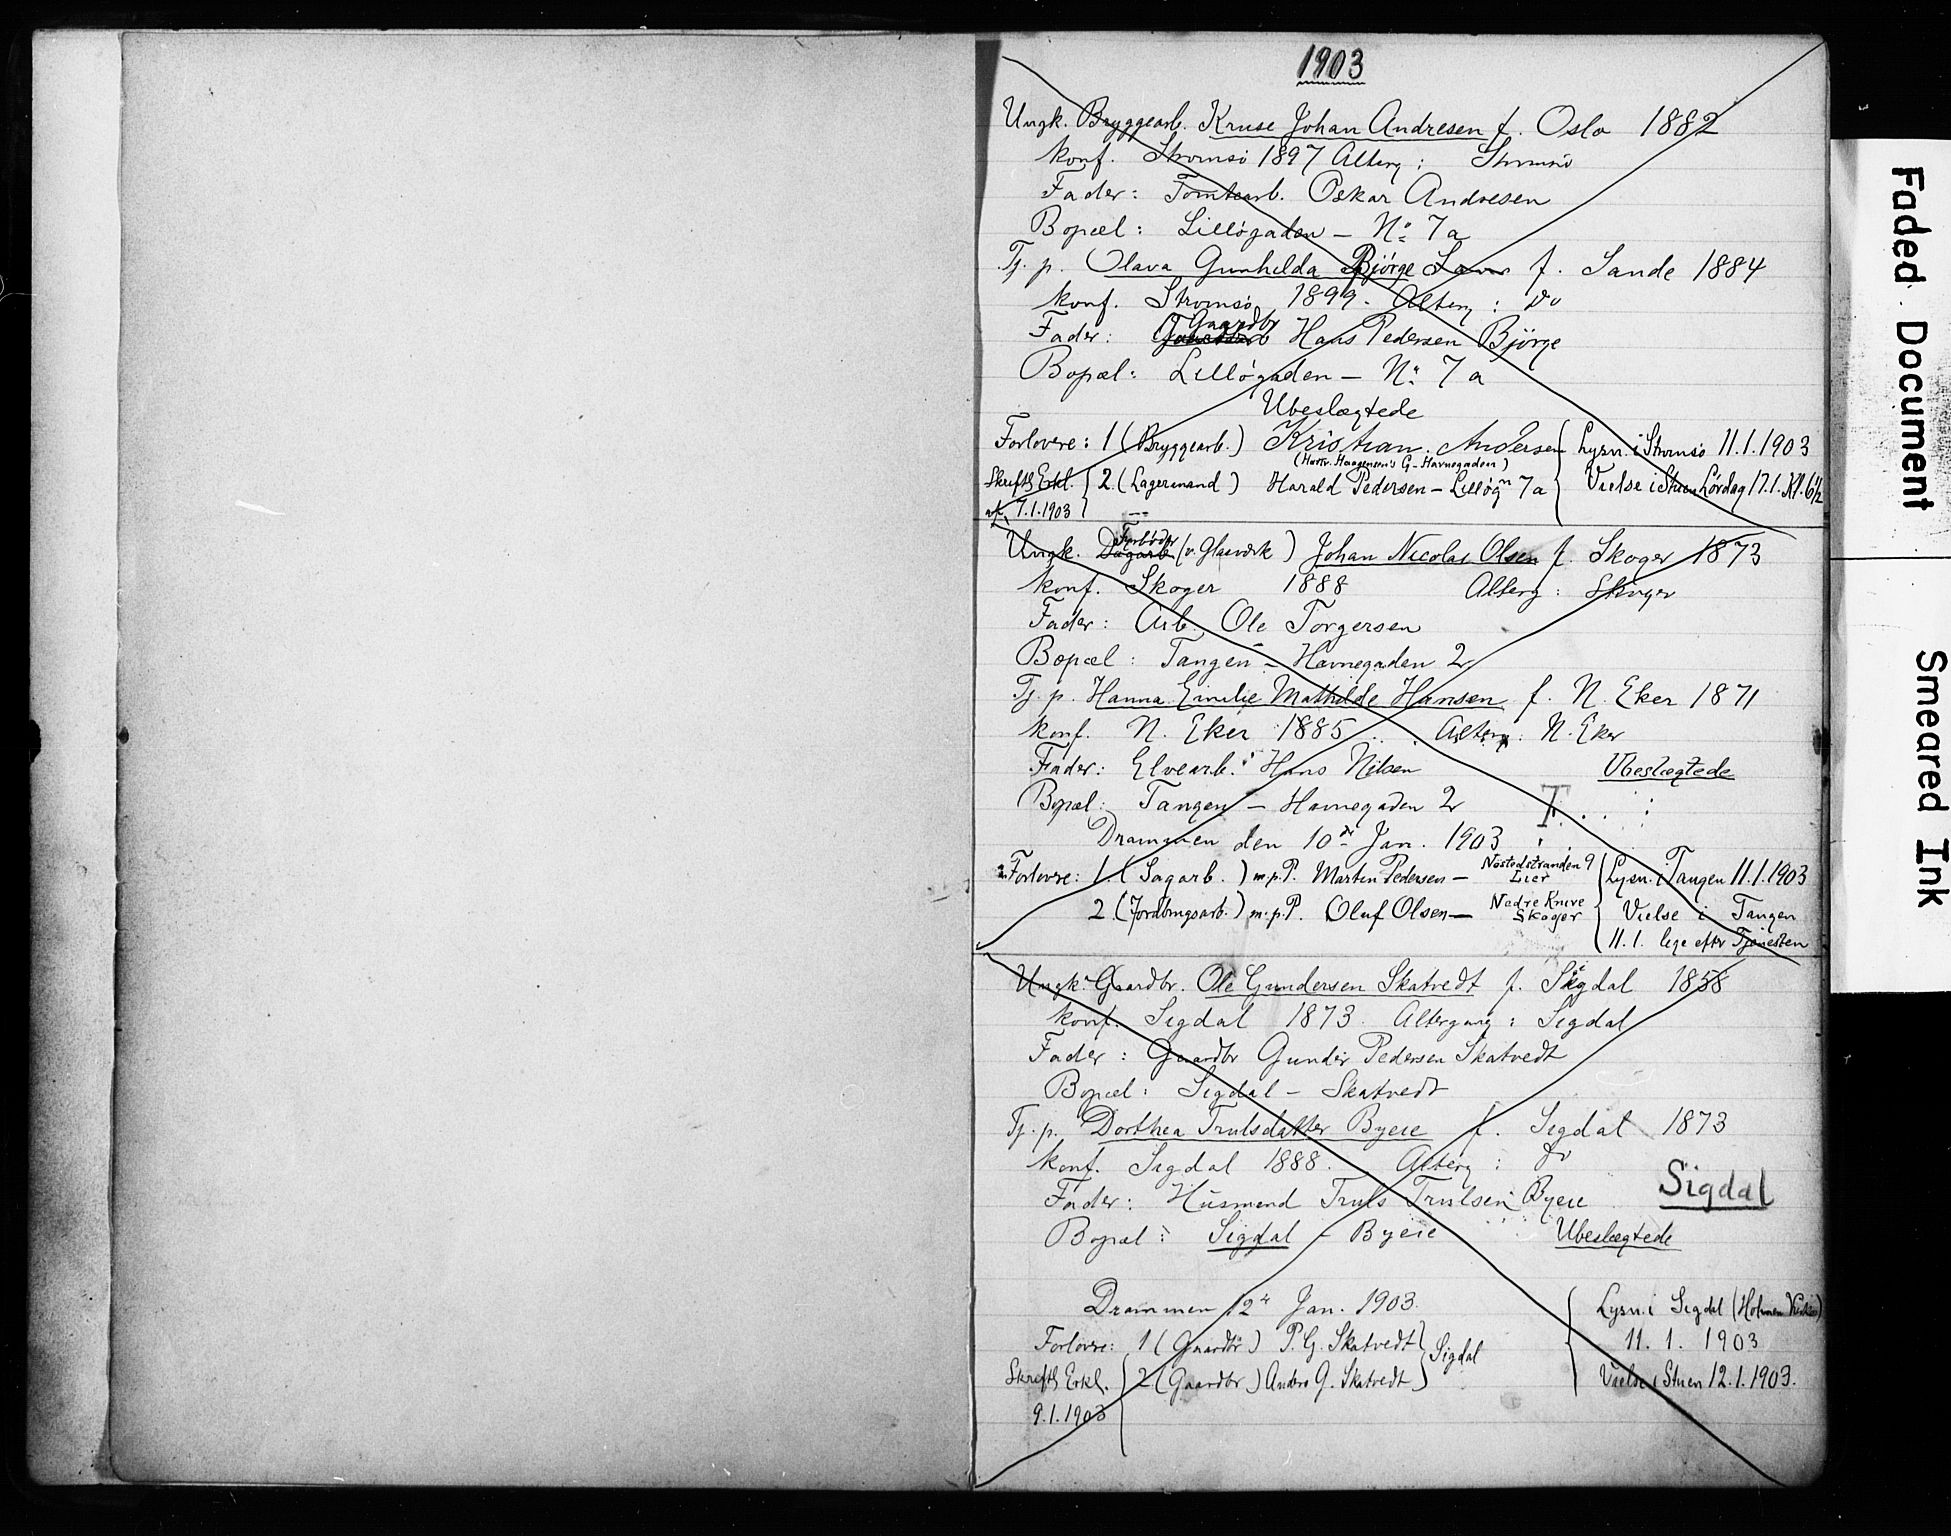 1903
Ungk. Bryggearb. Kruse Johan Andresen f. Oslo 1882
konf. Strømsø 1897 Alterg: Strømsø
Fader: Tomtearb. Oskar Andresen
Bopæl: Lilløgaden – No 7a
Tj. p. Olava Gunhilda Bjørge f. Sande 1884
konf. Strømsø 1899. Alterg: do
Gaardbr
Fader: Hans Pedersen Bjørge
Bopæl: Lilløgaden – No 7a
Ubeslægtede
Forlovere: 1 (Bryggearb.) Kristian Andersen Lysn. i Strømsø 11.1.1903
(Hattv. Haagensen's G. Havnegaden)
Skriftl. Erkl. 2. (Lagermand) Harald Pedersen – Lilløgn 7a Vielse i Stuen Lördag 17.1. Kl. 6½
af 7.1.1903
Fyrbøder
Ungk. Dagarb (v. Glasværk) Johan Nicolai Olsen f. Skoger 1873
konf. Skoger 1888 Alterg: Skoger
Fader: Arb. Ole Torgersen
Bopæl: Tangen – Havnegaden 2
Tj. p. Hanna Emilie Mathilde Hansen f. N. Eker 1871
konf. N. Eker 1885 Alterg: N. Eker
Fader: Elvearb. Hans Nilsen Ubeslægtede
Bopæl: Tangen – Havnegaden 2 T.
Drammen den 10de Jan. 1903
Forlovere: 1. (Sagarb.) m.p.P. Martin Pedersen – Nøstedstranden 9 Lier Lysn. i Tangen 11.1.1903
2 (Jordbrugsarb.) m.p.P. Oluf Olsen – Nedre Knive Skoger Vielse i Tangen
11.1. lige efter Tjenesten
Ungk. Gaardbr. Ole Gundersen Skatvedt f. Sigdal 1858
konf. Sigdal 1873. Altergang: Sigdal
Fader: Gaardbr Gunder Pedersen Skatvedt
Bopæl: Sigdal – Skatvedt
Tj. p. Dorthea Trulsdatter Byeie f. Sigdal 1873
konf. Sigdal 1888. Alterg: do
Sigdal
Fader: Husmand Truls Trulsen Byeie
Bopæl: Sigdal – Byeie Ubeslægtede
Drammen 12te Jan. 1903. Lysn. i Sigdal (Holmen Kirke)
11. 1. 1903
Forlovere: 1 (Gaardbr) P. G. Skatvedt Sigdal
Skriftl Erkl. 2 (Gaardbr) Anders G. Skatvedt Vielse i Stuen 12.1.1903.
9.1.1903
Faded Document
Smeared Ink